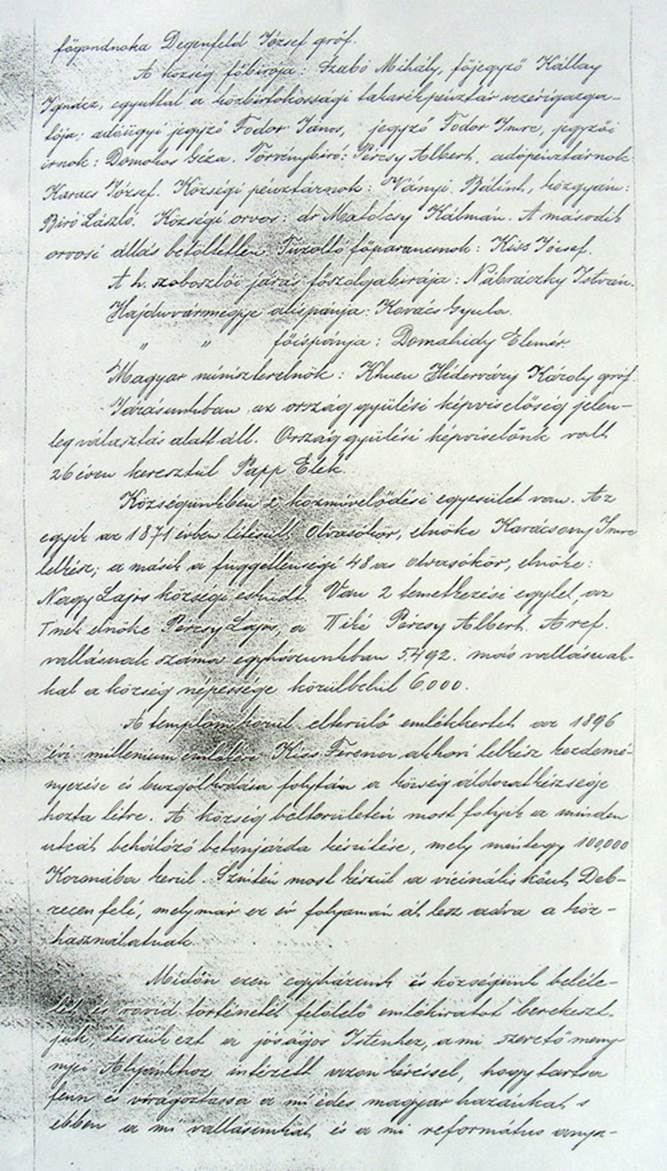 főgondnoka Degenfeld József gróf.
A község főbirája: Szabó Mihály, főjegyző Kállay
Ignácz, egyuttal a közbirtokossági takarékpénztár vezérigazga-
tója; adóügyi jegyző Fodor János, jegyző Fodor Imre, jegyzői
irnok: Domokos Géza. Törvénybiró: Pércsy Albert, adópénztárnok:
Karacs József. Községi pénztárnok: Ványi Bálint, közgyám:
Biró László. Községi orvos: dr Matolcsy Kálmán. A második
orvosi állás betöltetlen. Tüzoltó főparancsnok: Kiss József.
A h. szoboszlói járás főszolgabirája: Nábráczky István.
Hajduvármegye alispánja: Kovács Gyula.
" " főispánja: Domahidy Elemér.
Magyar miniszterelnök: Khuen Héderváry Károly gróf.
Járásunkban az országgyülési képviselőség jelen-
leg választás alatt áll. Országgyülési képviselőnk volt
26 éven keresztül Papp Elek.
Községünkben 2 közművelődési egyesület van. Az
egyik az 1871 évben létesült Olvasókör, elnöke Karácsony Imre
lelkész; a másik a függetlenségi 48 as olvasókör, elnöke:
Nagy Lajos községi esküdt. Van 2 temetkezési egylet, az
I nek elnöke Pércsy Lajos, a II iké Pércsy Albert. A ref.
vallásuak száma egyházunkban 5492. más vallásuak-
kal a község népessége körülbelül 6,000.
A templom körül elterülő emlékkertet az 1896
évi millenium emlékére Kiss Ferencz akkori lelkész kezdemé-
nyezése és buzgolkodása folytán a község áldozatkészsége
hozta létre. A község belterületén most folyik a minden
utcát behálózó betonjárda készitése, mely mintegy 100,000
Koronába kerül. Szintén most készül a vicinális kőút Deb-
recen felé, mely már ez év folyamán át lesz adva a köz-
használatnak.
Midőn ezen egyházunk és községünk beléle-
tét és rövid történetét felölelő emlékiratot berekeszt-
jük, tesszük ezt a jóságos Istenhez, a mi szerető meny-
nyei Atyánkhoz intézett azon kéréssel, hogy tartsa
fenn és virágoztassa a mi édes magyar hazánkat s
ebben a mi vallásunkat és a mi református anya-